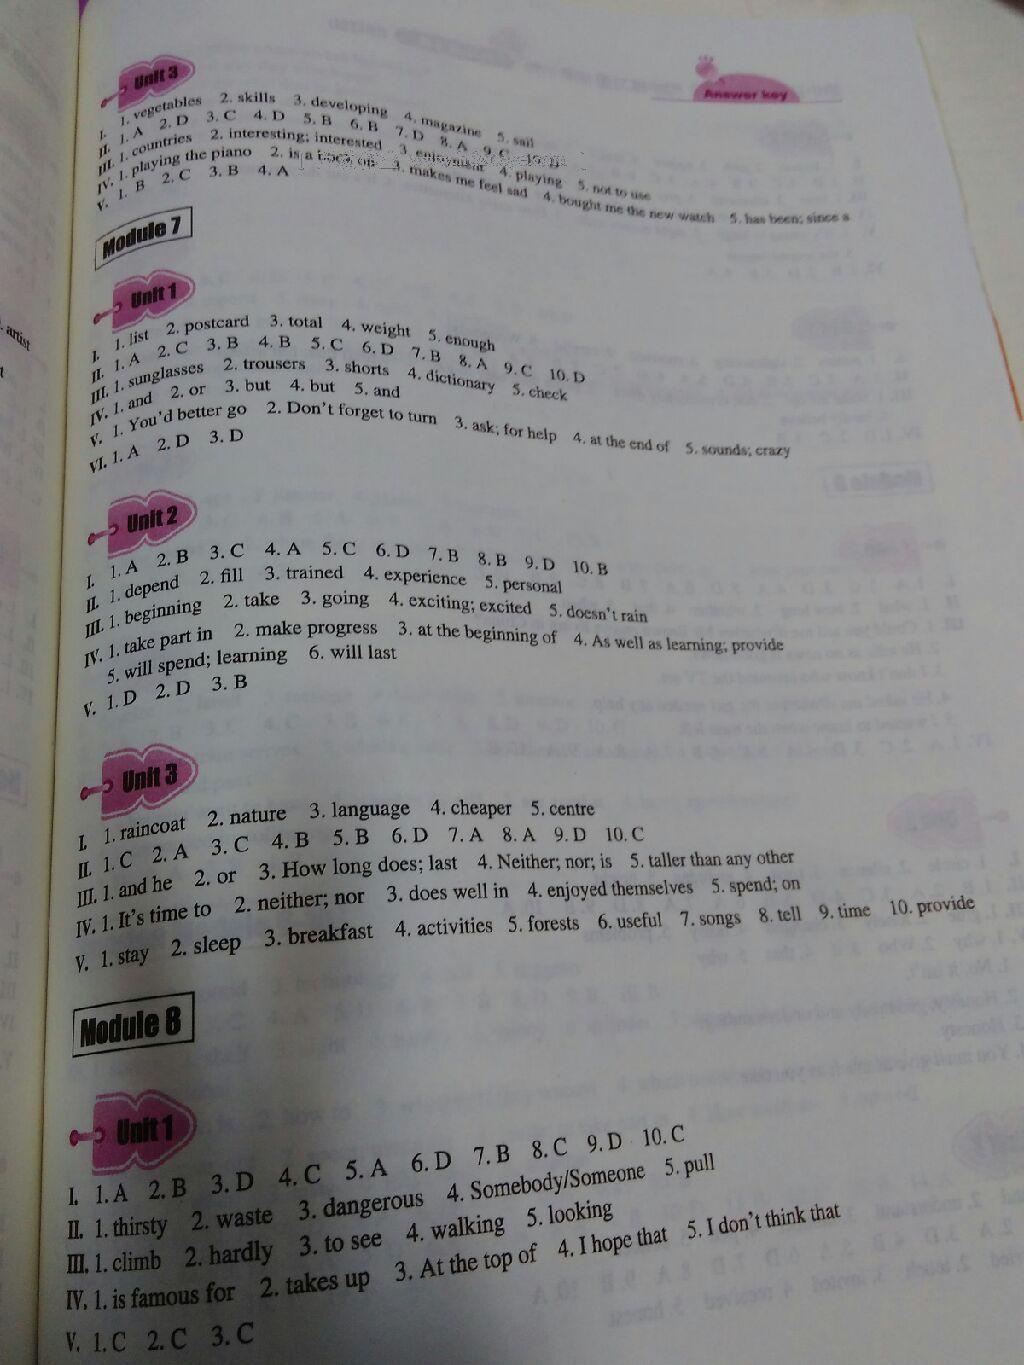 Answer key
Unit 3
I. 1. vegetables 2. skills 3. developing 4. magazine 5. sail
II. 1. A 2. D 3. C 4. D 5. B 6. B 7. D 8. A 9. C 10.
III. 1. countries 2. interesting; interested 3. enjoyment 4. playing 5. not to use
IV. 1. playing the piano 2. is a 3. makes me feel sad 4. bought me the new watch 5. has been; since a
V. 1. B 2. C 3. B 4. A
Module 7
Unit 1
I. 1. list 2. postcard 3. total 4. weight 5. enough
II. 1. A 2. C 3. B 4. B 5. C 6. D 7. B 8. A 9. C 10. D
III. 1. sunglasses 2. trousers 3. shorts 4. dictionary 5. check
IV. 1. and 2. or 3. but 4. but 5. and
V. 1. You'd better go 2. Don't forget to turn 3. ask; for help 4. at the end of 5. sounds; crazy
VI. 1. A 2. D 3. D
Unit 2
I. 1. A 2. B 3. C 4. A 5. C 6. D 7. B 8. B 9. D 10. B
II. 1. depend 2. fill 3. trained 4. experience 5. personal
III. 1. beginning 2. take 3. going 4. exciting; excited 5. doesn't rain
IV. 1. take part in 2. make progress 3. at the beginning of 4. As well as learning; provide
5. will spend; learning 6. will last
V. 1. D 2. D 3. B
Unit 3
I. 1. raincoat 2. nature 3. language 4. cheaper 5. centre
II. 1. C 2. A 3. C 4. B 5. B 6. D 7. A 8. A 9. D 10. C
III. 1. and he 2. or 3. How long does; last 4. Neither; nor; is 5. taller than any other
IV. 1. It's time to 2. neither; nor 3. does well in 4. enjoyed themselves 5. spend; on
V. 1. stay 2. sleep 3. breakfast 4. activities 5. forests 6. useful 7. songs 8. tell 9. time 10. provide
Module 8
Unit 1
I. 1. A 2. B 3. D 4. C 5. A 6. D 7. B 8. C 9. D 10. C
II. 1. thirsty 2. waste 3. dangerous 4. Somebody/Someone 5. pull
III. 1. climb 2. hardly 3. to see 4. walking 5. looking
IV. 1. is famous for 2. takes up 3. At the top of 4. I hope that 5. I don't think that
V. 1. C 2. C 3. C
artist